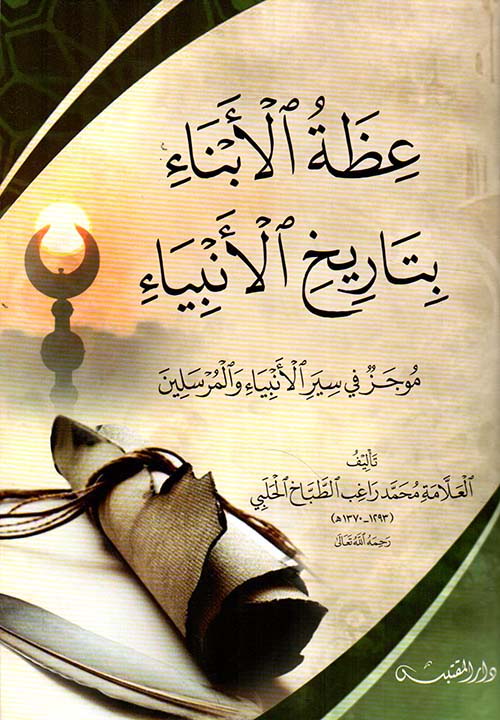 عِظَةُ ٱلْأَبْنَاءِ
بِتَارِيخِ ٱلْأَنْبِيَاءِ
مُوجَزٌ فِي سِيَرِ ٱلْأَنْبِيَاءِ وَٱلْمُرْسَلِينَ
تَأْلِيْفُ
ٱلْعَلَّامَةِ مُحَمَّد رَاغِب ٱلطَّبَّاخ ٱلْحَلَبِي
(١٢٩٣-١٣٧٠هـ)
رَحِمَهُ ٱللَّهُ تَعَالَى
دار المقتبس